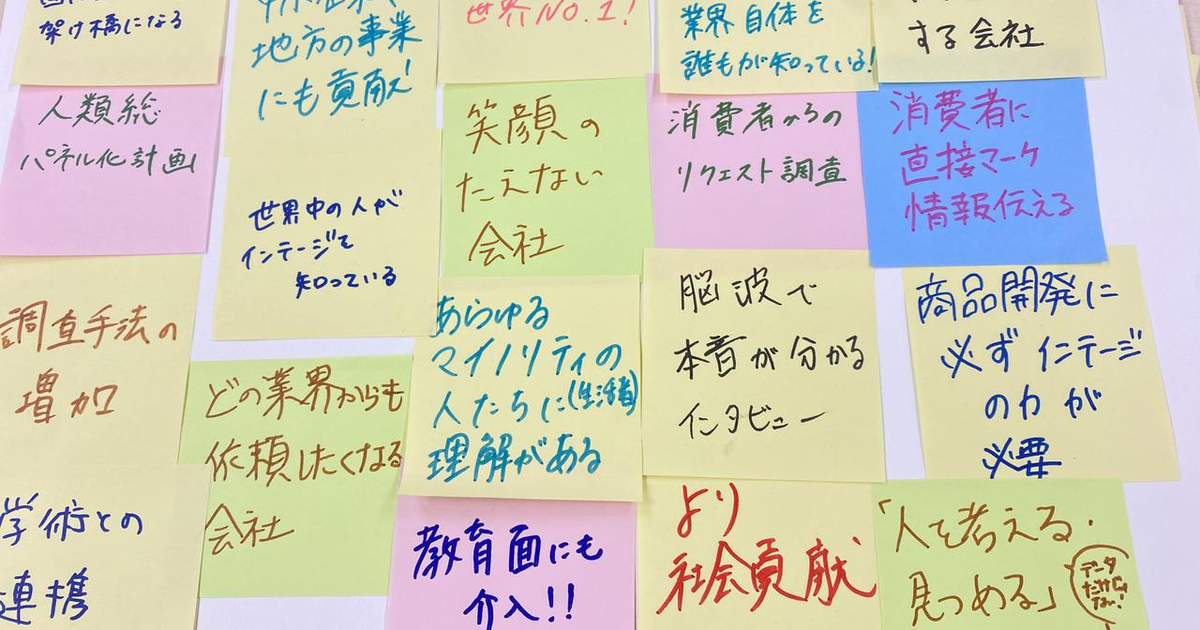 架け橋になる
地方の事業
にも貢献!
世界NO.1!
業界自体を
誰もが知っている!
する会社
人類総
パネル化計画
世界中の人が
インテージを
知っている
笑顔の
たえない
会社
消費者からの
リクエスト調査
消費者に
直接マーケ
情報伝える
調査手法の
増加
どの業界からも
依頼したくなる
会社
あらゆる
マイノリティの
人たちに(生活者)
理解がある
脳波で
本音が分かる
インタビュー
商品開発に
必ずインテージ
の力が
必要
学術との
連携
教育面にも
介入!!
より
社会貢献
「人を考える・
見つめる」
データ
だけじゃ
ない!